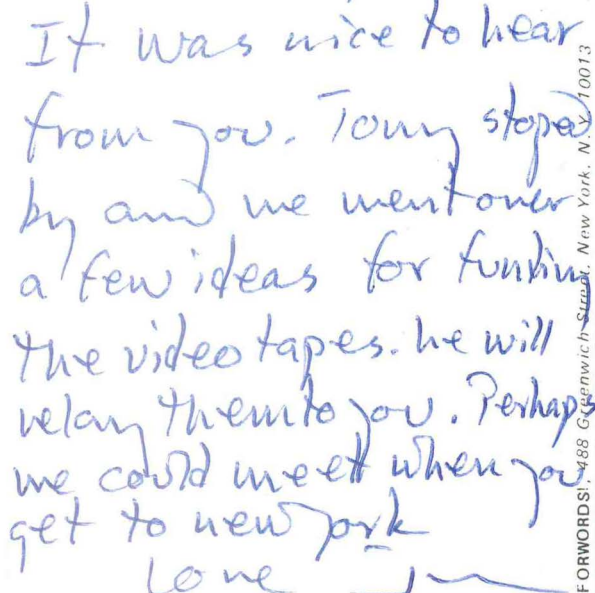 It was nice to hear
from you. Tony stoped
by and we went over
a few ideas for funding
the video tapes. he will
relay them to you. Perhaps
we could meet when you
get to new york
Love
FORWORDS!, 488 Greenwich Street, New York, N.Y. 10013